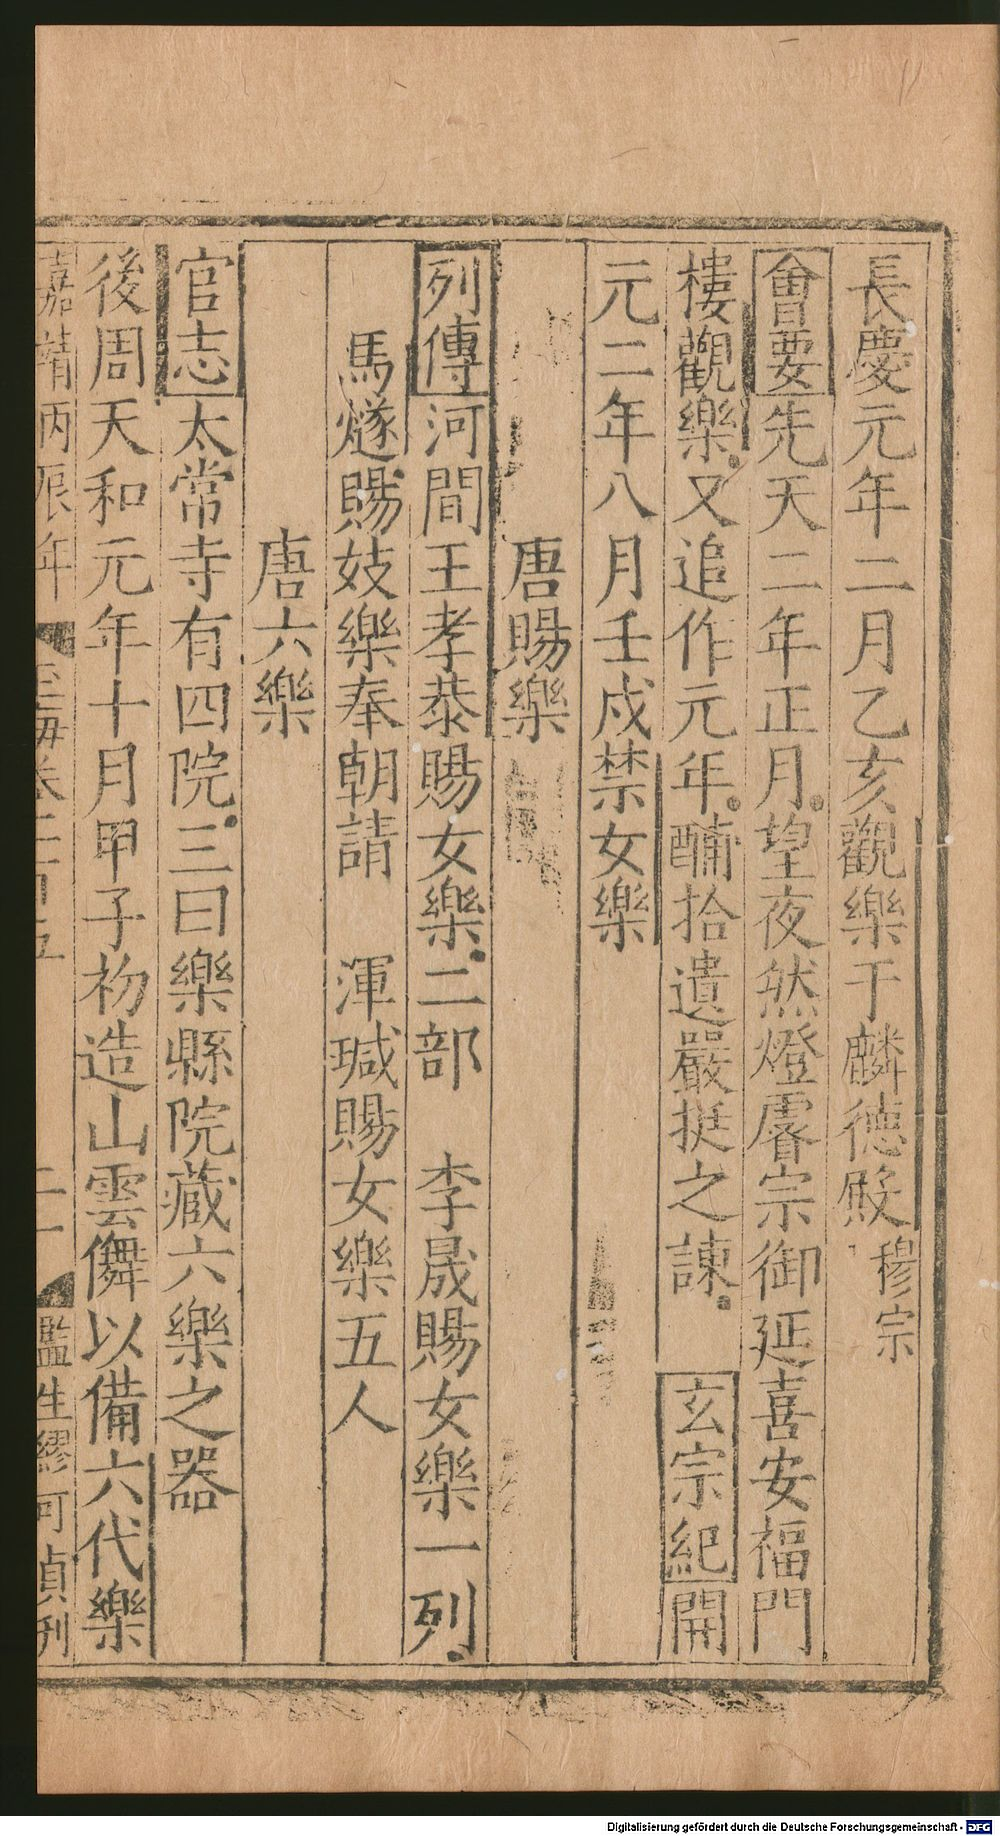 長慶元年二月乙亥觀樂于麟德殿穆宗
會要先天二年正月望夜然燈睿宗御延喜安福門
樓觀樂又追作元年酺拾遺嚴挺之諫玄宗紀開
元二年八月壬戌禁女樂
唐賜樂
列傳河間王孝恭賜女樂二部 李晟賜女樂一列
馬燧賜妓樂奉朝請 渾瑊賜女樂五人
唐六樂
官志太常寺有四院三曰樂縣院藏六樂之器
後周天和元年十月甲子初造山雲儛以備六代樂
嘉靖丙辰年 玉海卷二百五 二一 監生繆可貞刊
Digitalisierung gefördert durch die Deutsche Forschungsgemeinschaft - DFG